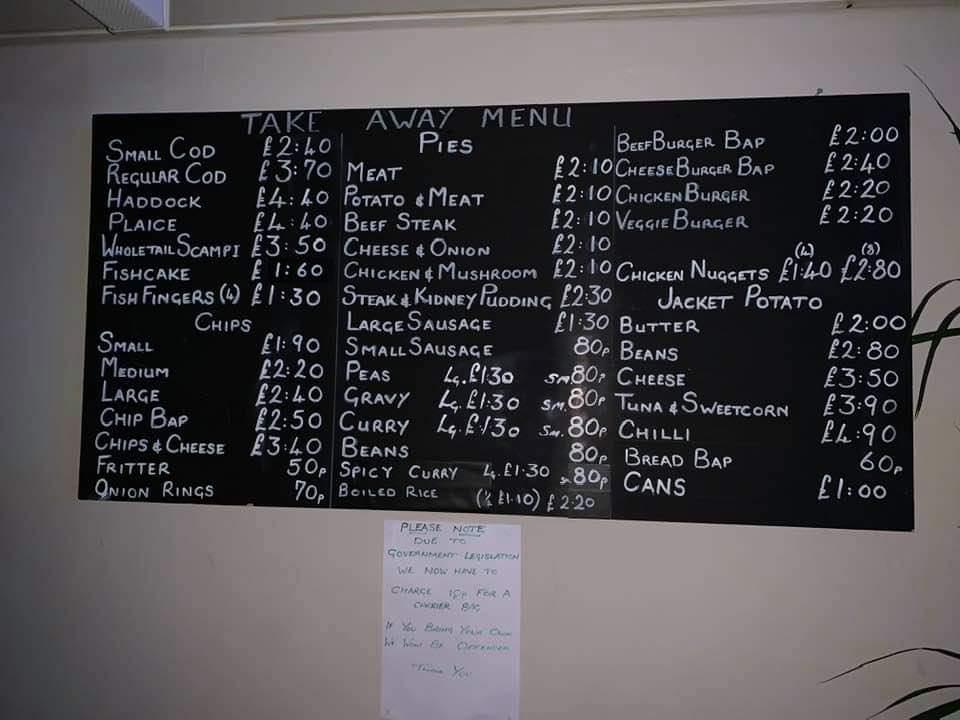 TAKE AWAY MENU
SMALL COD £2:40
REGULAR COD £3:70
HADDOCK £4:40
PLAICE £4:40
WHOLETAIL SCAMPI £3:50
FISHCAKE £1:60
FISH FINGERS (4) £1:30
CHIPS
SMALL £1:90
MEDIUM £2:20
LARGE £2:40
CHIP BAP £2:50
CHIPS & CHEESE £3:40
FRITTER 50p
ONION RINGS 70p
PIES
MEAT £2:10
POTATO & MEAT £2:10
BEEF STEAK £2:10
CHEESE & ONION £2:10
CHICKEN & MUSHROOM £2:10
STEAK & KIDNEY PUDDING £2:30
LARGE SAUSAGE £1:30
SMALL SAUSAGE 80p
PEAS Lg. £1:30 SM. 80p
GRAVY Lg. £1:30 SM. 80p
CURRY Lg. £1:30 SM. 80p
BEANS 80p
SPICY CURRY L. £1.30 S. 80p
BOILED RICE (½ £1.10) £2.20
BEEFBURGER BAP £2:00
CHEESEBURGER BAP £2:40
CHICKEN BURGER £2:20
VEGGIE BURGER £2:20
(4) (8)
CHICKEN NUGGETS £1:40 £2:80
JACKET POTATO
BUTTER £2:00
BEANS £2:80
CHEESE £3:50
TUNA & SWEETCORN £3:90
CHILLI £4:90
BREAD BAP 60p
CANS £1:00
PLEASE NOTE
DUE TO
GOVERNMENT LEGISLATION
WE NOW HAVE TO
CHARGE FOR A
CARRIER BAG
IF YOU BRING YOUR OWN
WE WONT BE OFFENDED
THANK YOU